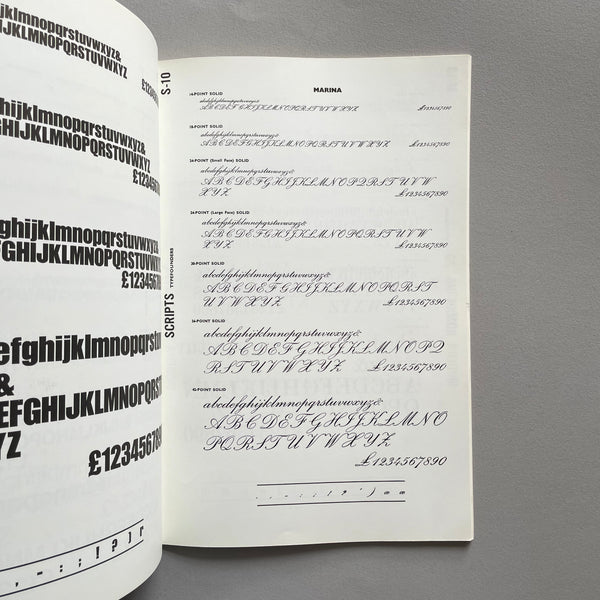 pqrstuvwxyz&
PQRSTUVWXYZ
£12345
hijklmnopqrstuvwxyz&
GHIJKLMNOPQRSTUVWXYZ
£1234567
ghijklmnopqrstuvwxyz
GHIJKLMNOPQRSTUVWXYZ
£12345678
efghijklmnopqrstuv
&
DEFGHIJKLMNOPQRSTUVW
YZ
£1234567890
, - : ; ! ? ) r
S-10
MARINA
14-POINT SOLID
abcdefghijklmnopqrstuvwxyz&
ABCDEFGHIJKLMNOPQRSTUVWXYZ
£1234567890
18-POINT SOLID
abcdefghijklmnopqrstuvwxyz&
ABCDEFGHIJKLMNOPQRSTUVWXYZ
£1234567890
24-POINT (Small Face) SOLID
abcdefghijklmnopqrstuvwxyz&
ABCDEFGHIJKLMNOPQRSTUVW
XYZ
£1234567890
24-POINT (Large Face) SOLID
abcdefghijklmnopqrstuvwxyz&
ABCDEFGHIJKLMNOPQRSTUVW
XYZ
£1234567890
30-POINT SOLID
abcdefghijklmnopqrstuvwxyz&
ABCDEFGHIJKLMNOPQRST
UVWXYZ
£1234567890
36-POINT SOLID
abcdefghijklmnopqrstuvwxyz&
ABCDEFGHIJKLMNOPQ
RSTUVWXYZ
£1234567890
42-POINT SOLID
abcdefghijklmnopqrstuvwxyz&
ABCDEFGHIJKLMNO
PQRSTUVWXYZ
£1234567890
SCRIPTS TYPEFOUNDERS